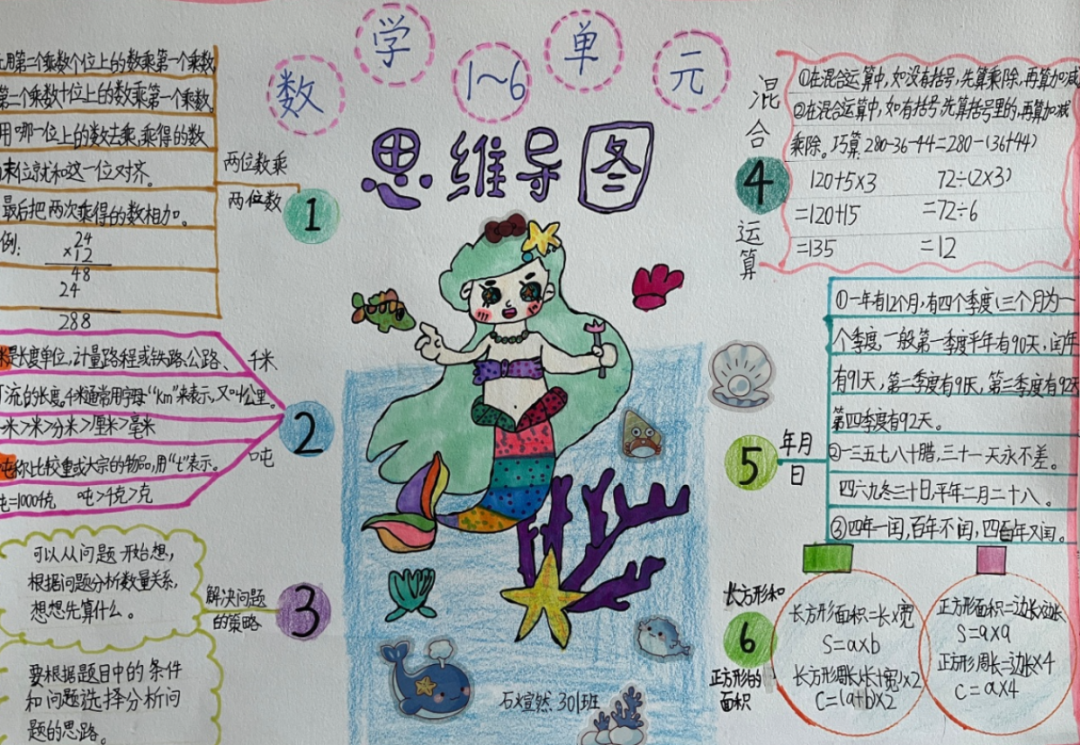 数学1~6单元
思维导图
1
两位数乘
两位数
用第二个乘数个位上的数乘第一个乘数
第二个乘数十位上的数乘第一个乘数。
用哪一位上的数去乘,乘得的数
末位就和这一位对齐。
最后把两次乘得的数相加。
例:
24
×12
48
24
288
2
千米
米是长度单位,计量路程或铁路、公路、
流的长度。千米通常用字母“km”来表示,又叫公里。
米>米>分米>厘米>毫米
吨
较重或大宗的物品,用“t”表示。
吨=1000千克 吨>千克>克
3
解决问题
的策略
可以从问题开始想,
根据问题分析数量关系,
想想先算什么。
要根据题目中的条件
和问题选择分析问
题的思路。
混合
4
运算
①在混合运算中,如没有括号,先算乘除,再算加减
②在混合运算中,如有括号,先算括号里的,再算加减
乘除。巧算:280-36-44=280-(36+44)
120+5×3 72÷(2×3)
=120+15 =72÷6
=135 =12
5
年月
日
①一年有12个月,有四个季度(三个月为一
个季度,一般第一季度平年有90天,闰年
有91天,第二季度有91天,第三季度有92天
第四季度有92天。
②一三五七八十腊,三十一天永不差。
四六九冬三十日,平年二月二十八。
③四年一闰,百年不闰,四百年又闰。
长方形和
6
正方形的
面积
长方形面积=长×宽
S=a×b
长方形周长=(长+宽)×2
C=(a+b)×2
正方形面积=边长×边长
S=a×a
正方形周长=边长×4
C=a×4
然 301班